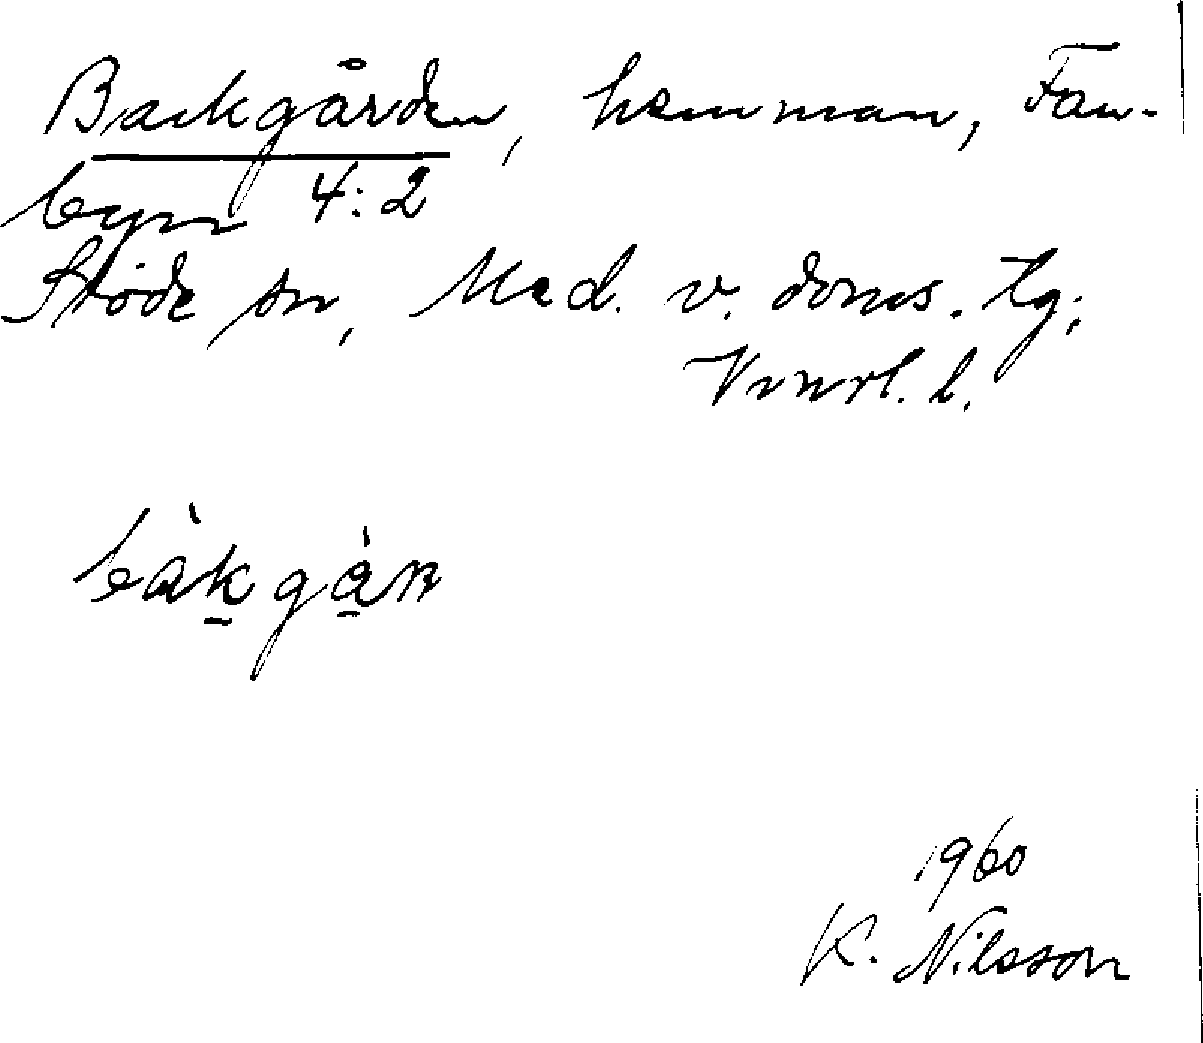 Backgården, hemman, Fan-
byn 4:2
Stöde sn, Med. v. doms. tg;
Vnrl. l.
bàkgàn
1960
K. Nilsson